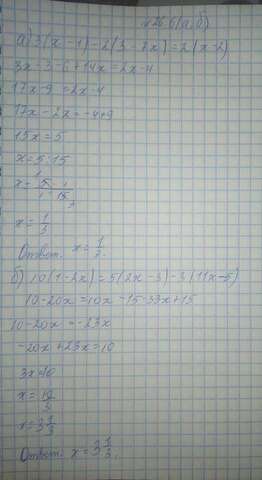 а) 3(x-1)-2(3-7x)=2(x-2)
3x-3-6+14x=2x-4
17x-9=2x-4
17x-2x=-4+9
15x=5
x=5:15
x=1/3
Ответ: x=1/3.
б) 10(1-2x)=5(2x-3)-3(11x-5)
10-20x=10x-15-33x+15
10-20x=-23x
-20x+23x=10
3x=10
x=10/3
x=3 1/3
Ответ: x=3 1/3.